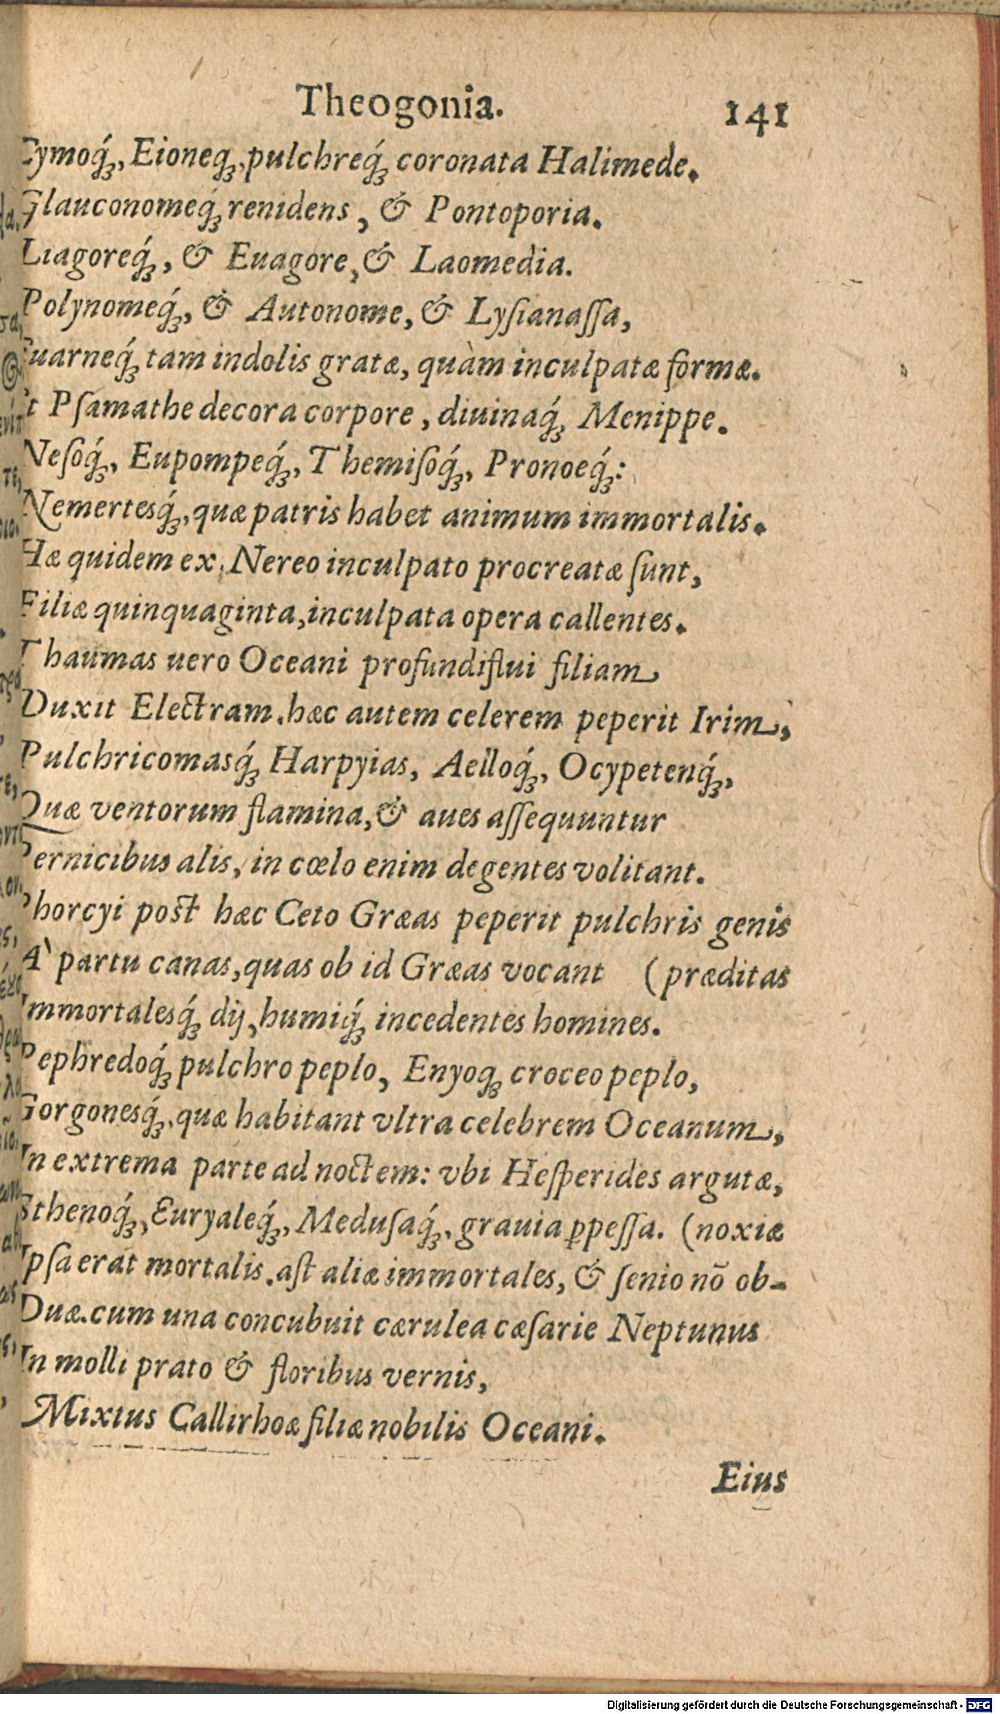 Theogonia. 141
Cymoq́;, Eioneq;, pulchreq́; coronata Halimede.
Glauconomeq́; renidens, & Pontoporia.
Liagoreq́;, & Euagore, & Laomedia.
Polynomeq́;, & Autonome, & Lyſianaſſa,
Euarneq́; tam indolis gratæ, quàm inculpatæ formæ.
Et Pſamathe decora corpore, diuinaq́; Menippe.
Neſóq́;, Eupompeq́;, Themiſóq́;, Pronoeq́;:
Nemertesq́;, quæ patris habet animum immortalis.
Hæ quidem ex Nereo inculpato procreatæ ſunt,
Filiæ quinquaginta, inculpata opera callentes.
Thaumas uero Oceani profundiflui filiam
Duxit Electram. hæc autem celerem peperit Irim,
Pulchricomasq́; Harpyias, Aelloq́;, Ocypetenq́;,
Quæ ventorum flamina, & aues aſſequuntur
Pernicibus alis, in cœlo enim degentes volitant.
Phorcyi poſt hæc Ceto Græas peperit pulchris genis
A` partu canas, quas ob id Græas vocant (præditas
Immortalesq́; dij, humiq́; incedentes homines.
Pephredoq́; pulchro peplo, Enyoq; croceo peplo,
Gorgonesq́;, quæ habitant vltra celebrem Oceanum,
In extrema parte ad noctem: vbi Heſperides argutæ,
Sthenoq́;, Euryaleq́;, Meduſaq́;, grauia ꝑpeſſa. (noxiæ
Ipſa erat mortalis. aſt aliæ immortales, & ſenio nō ob-
Duæ. cum una concubuit cærulea cæſarie Neptunus
In molli prato & floribus vernis,
Mixtus Callirhoæ filiæ nobilis Oceani.
Eius
Digitalisierung gefördert durch die Deutsche Forschungsgemeinschaft - DFG